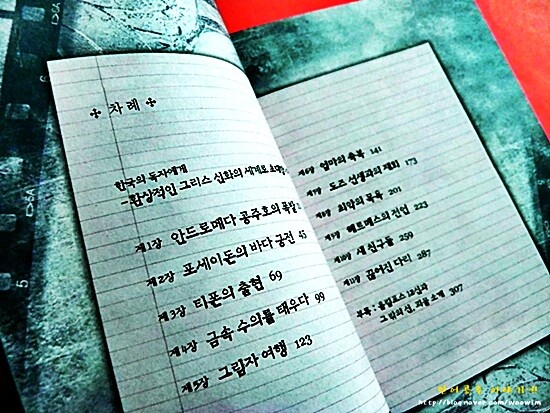 차례
한국의 독자에게
-환상적인 그리스 신화의 세계로
제1장 안드로메다 공주호의 폭발
제2장 포세이돈의 바다 궁전 45
제3장 티폰의 출현 69
제4장 금속 수의를 태우다 99
제5장 그림자 여행 123
제6장 엄마의 축복 141
제7장 도즈 선생과의 재회 173
제8장 최악의 목욕 201
제9장 헤르메스의 전언 223
제10장 새 친구들 259
제11장 끊어진 다리 287
부록 : 올림포스 12신과
그 밖의 신, 괴물 소개 307
http://blog.naver.com/woowim